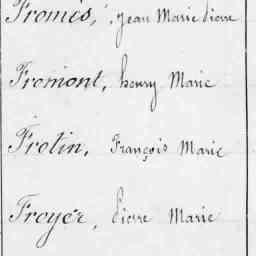 Fromès, Jean Marie Pierre
Fremont, henry Marie
Frotin, François Marie
Froyer, Pierre Marie